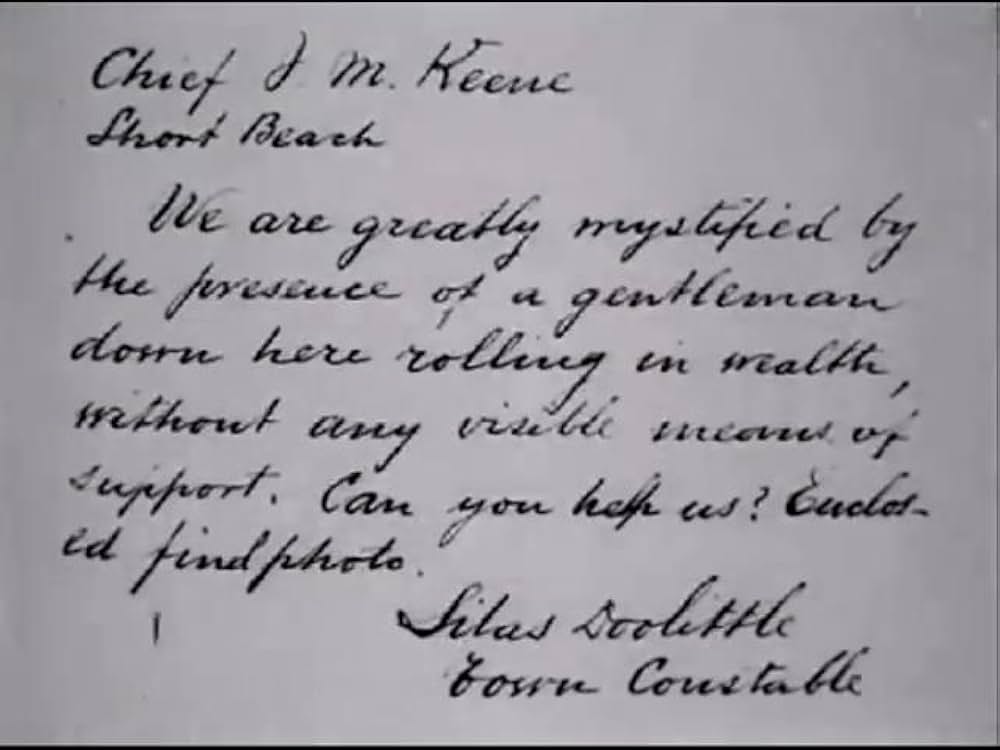 Chief J. M. Keene
Short Beach
We are greatly mystified by
the presence of a gentleman
down here rolling in wealth,
without any visible means of
support. Can you help us? Enclos-
ed find photo.
Silas Doolittle
Town Constable